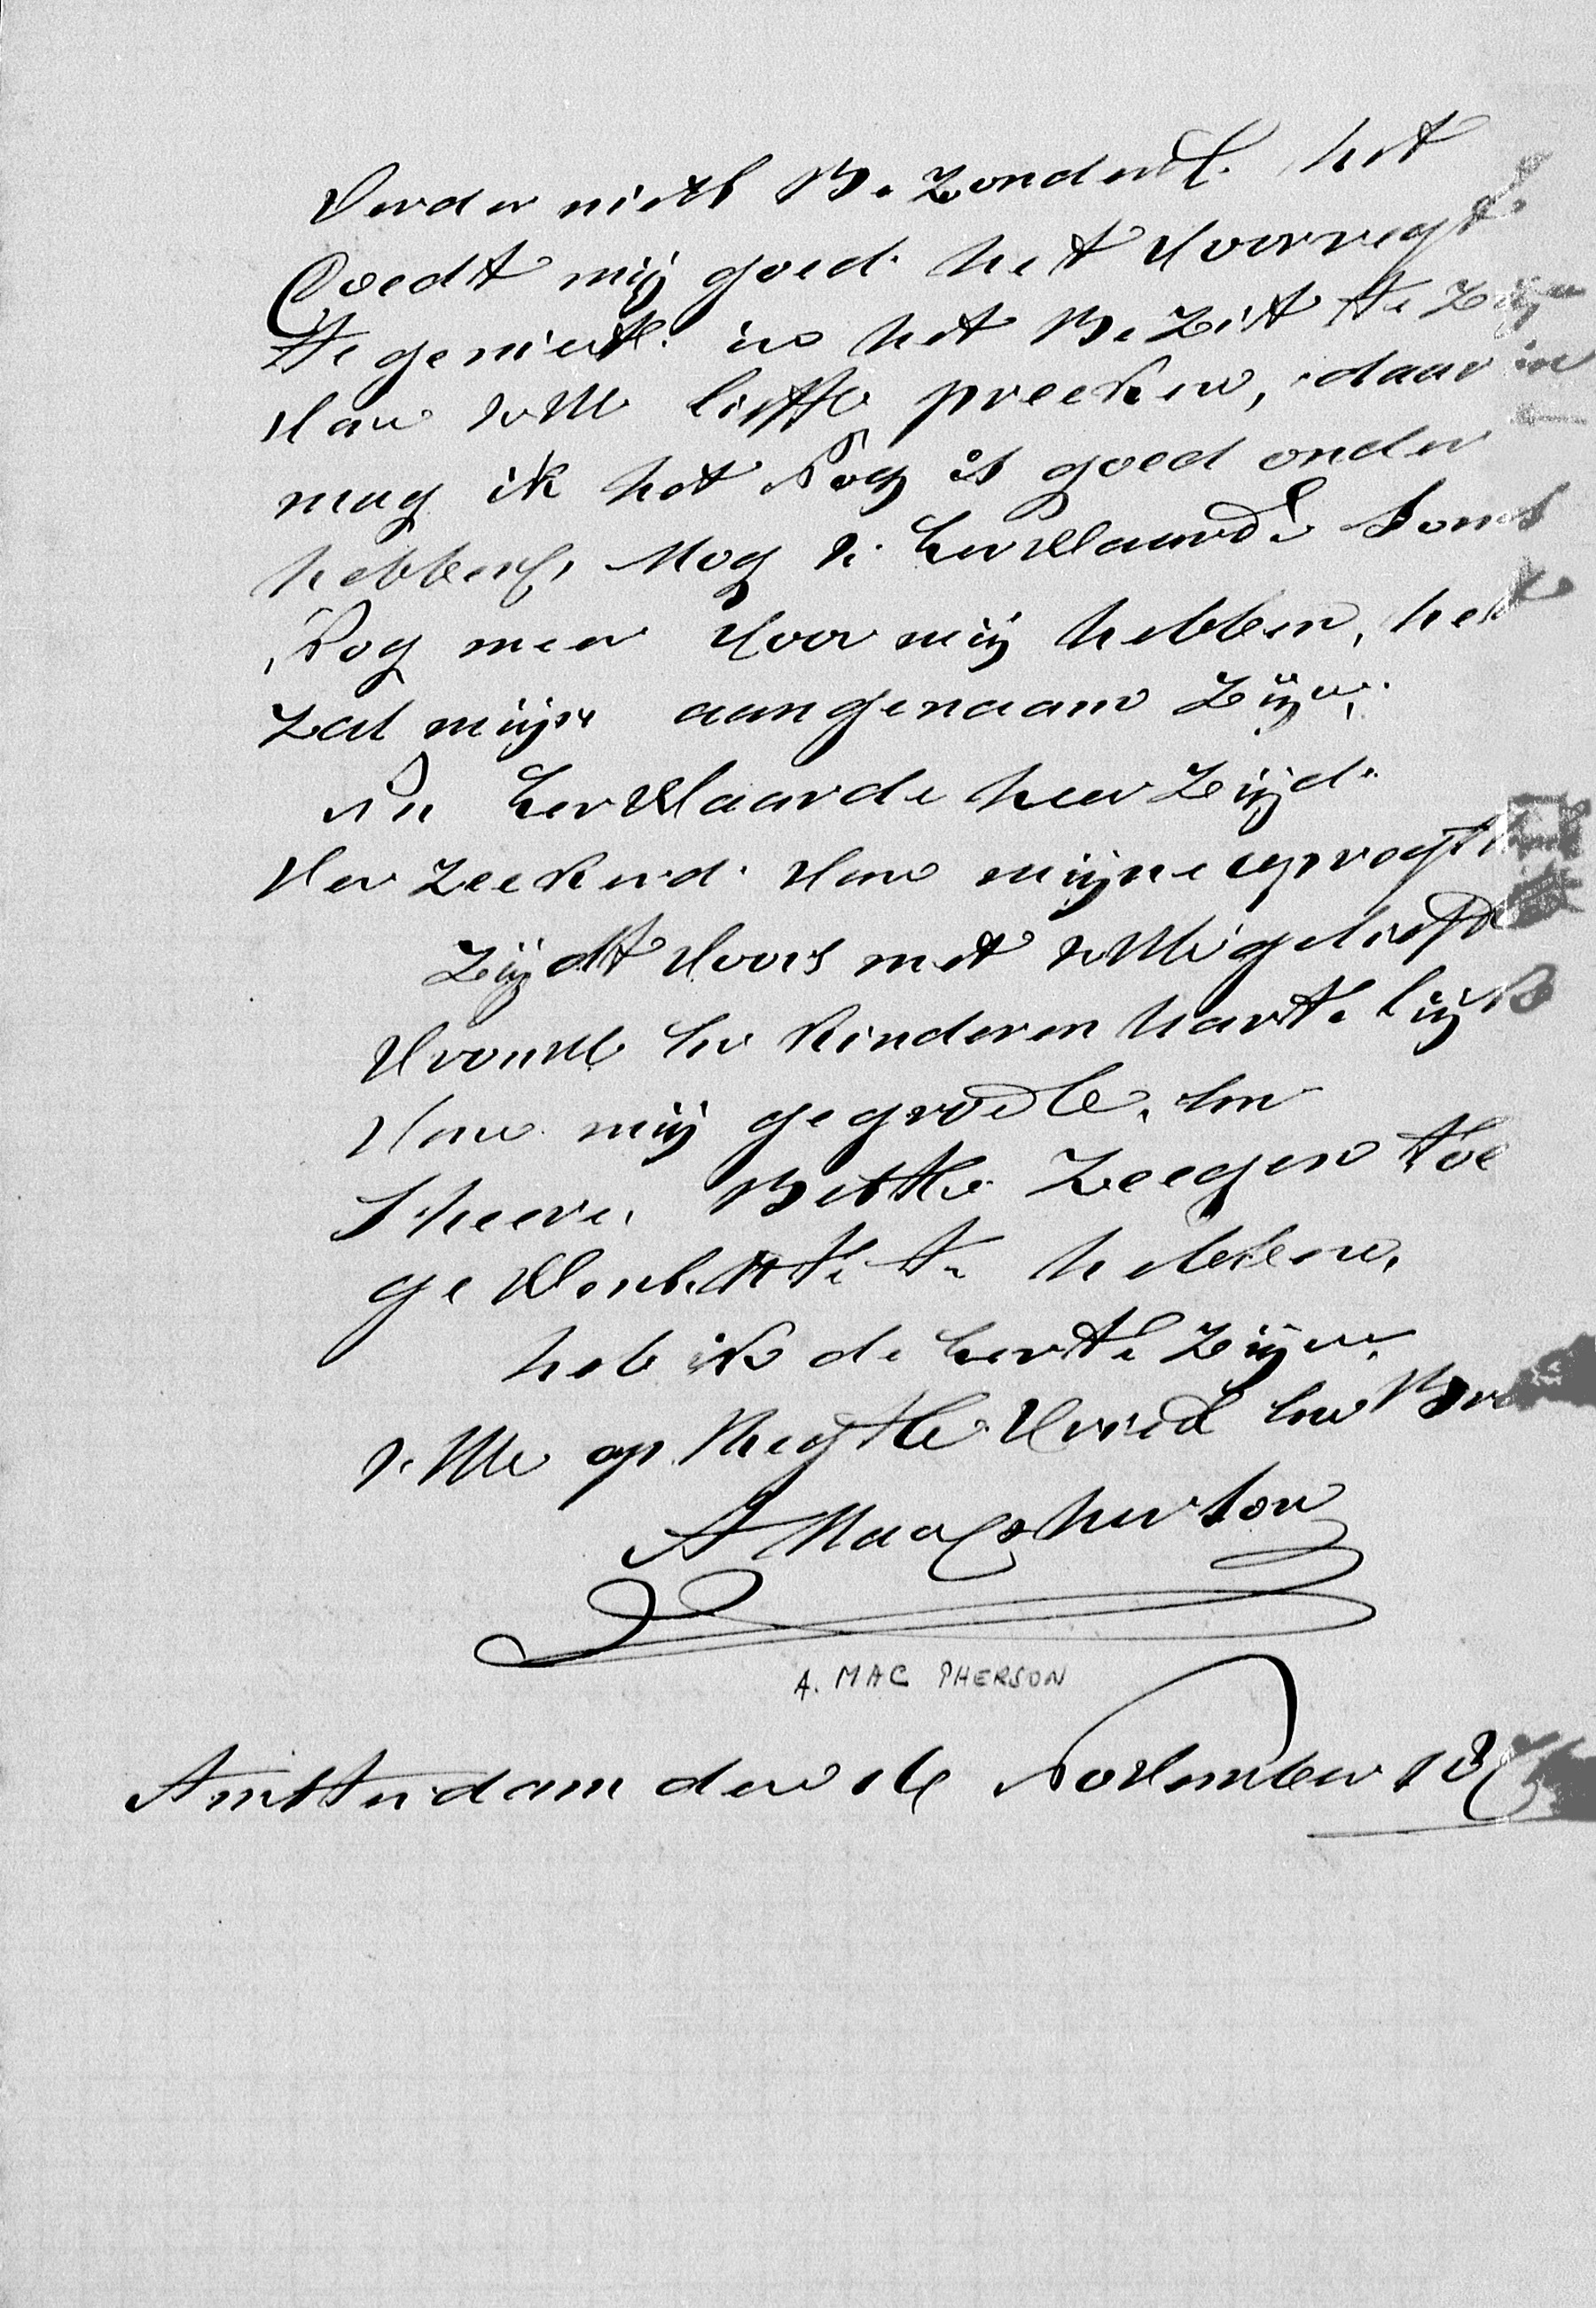 Verder niets Bezonders. het
Doedt mij goed. het Voorregt
te geniete. in het Bezit te Zijn
Van UWE liefste preeken, daar in
mag ik het Nog is goed onder
hebben, Mog U. EerWaarde Soms
Nog meer Voor mij hebben, het
Zal mijn aangenaam Zijn.
Nu EerWaarde heer Zijd.
Verzeekerd. Van mijne opregt
Zijdt Voors met UWE geliefde
Vrouwe En Kinderen hartelijk
Van mij gegroete. En
S'heere. Beste Zeegen toe
geWenst te hebben.
heb ik de Eer te Zijn.
UWE op Regte Vriend En Bro
A MaacPherson
A. MAC PHERSON
Amsterdam den 16 November 18